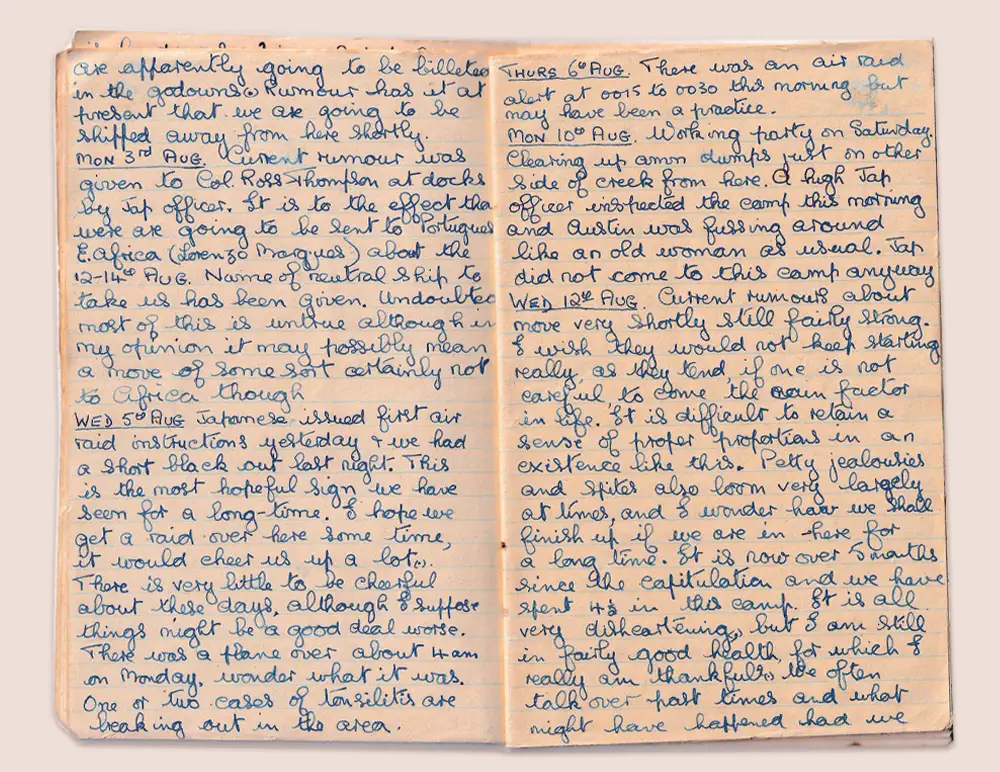 are apparently going to be billeted
in the godowns. Rumour has it at
present that we are going to be
shipped away from here shortly.
MON 3rd AUG. Current rumour was
given to Col. Ross Thompson at docks
by Jap officer. It is to the effect tha
were are going to be sent to Portugues
E. Africa (Lorenzo Marques) about the
12-14th AUG. Name of neutral ship to
take us has been given. Undoubted
most of this is untrue although in
my opinion it may possibly mean
a move of some sort certainly not
to Africa though
WED 5th AUG Japanese issued first air
raid instructions yesterday & we had
a short black out last night. This
is the most hopeful sign we have
seen for a long-time. I hope we
get a raid over here some time,
it would cheer us up a lot.
There is very little to be cheerful
about these days, although I suppose
things might be a good deal worse.
There was a plane over about 4 am
on Monday, wonder what it was.
One or two cases of tonsilitis are
breaking out in the area.
THURS 6th AUG. There was an air raid
alert at 0015 to 0030 this morning but
may have been a practice.
MON 10th AUG. Working party on Saturday.
Clearing up amn dumps just on other
side of creek from here. A high Jap
officer inspected the camp this morning
and Austin was fussing around
like an old woman as usual. Jap
did not come to this camp anyway
WED 12th AUG. Current rumours about
move very shortly still fairly strong.
I wish they would not keep starting
really, as they tend, if one is not
careful, to come the main factor
in life. It is difficult to retain a
sense of proper proportions in an
existence like this. Petty jealousies
and spites also loom very largely
at times, and I wonder how we shall
finish up if we are in here for
a long time. It is now over 5 months
since the capitulation and we have
spent 4½ in this camp. It is all
very disheartening, but I am still
in fairly good health, for which I
really am thankful. We often
talk over past times and what
might have happened had we